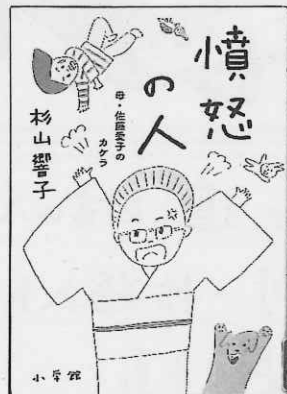 憤怒
の人
母・佐藤愛子の
カケラ
杉山響子
小学館